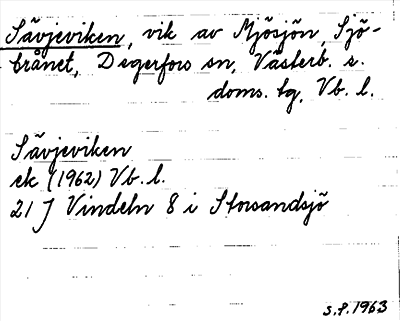 Sävjeviken, vik av Mjösjön, Sjö-
brånet, Degerfors sn, Västerb. s.
doms. tg, Vb. l.
Sävjeviken
ek (1962) Vb. l.
21 J Vindeln 8 i Storsandsjö
S.P. 1963